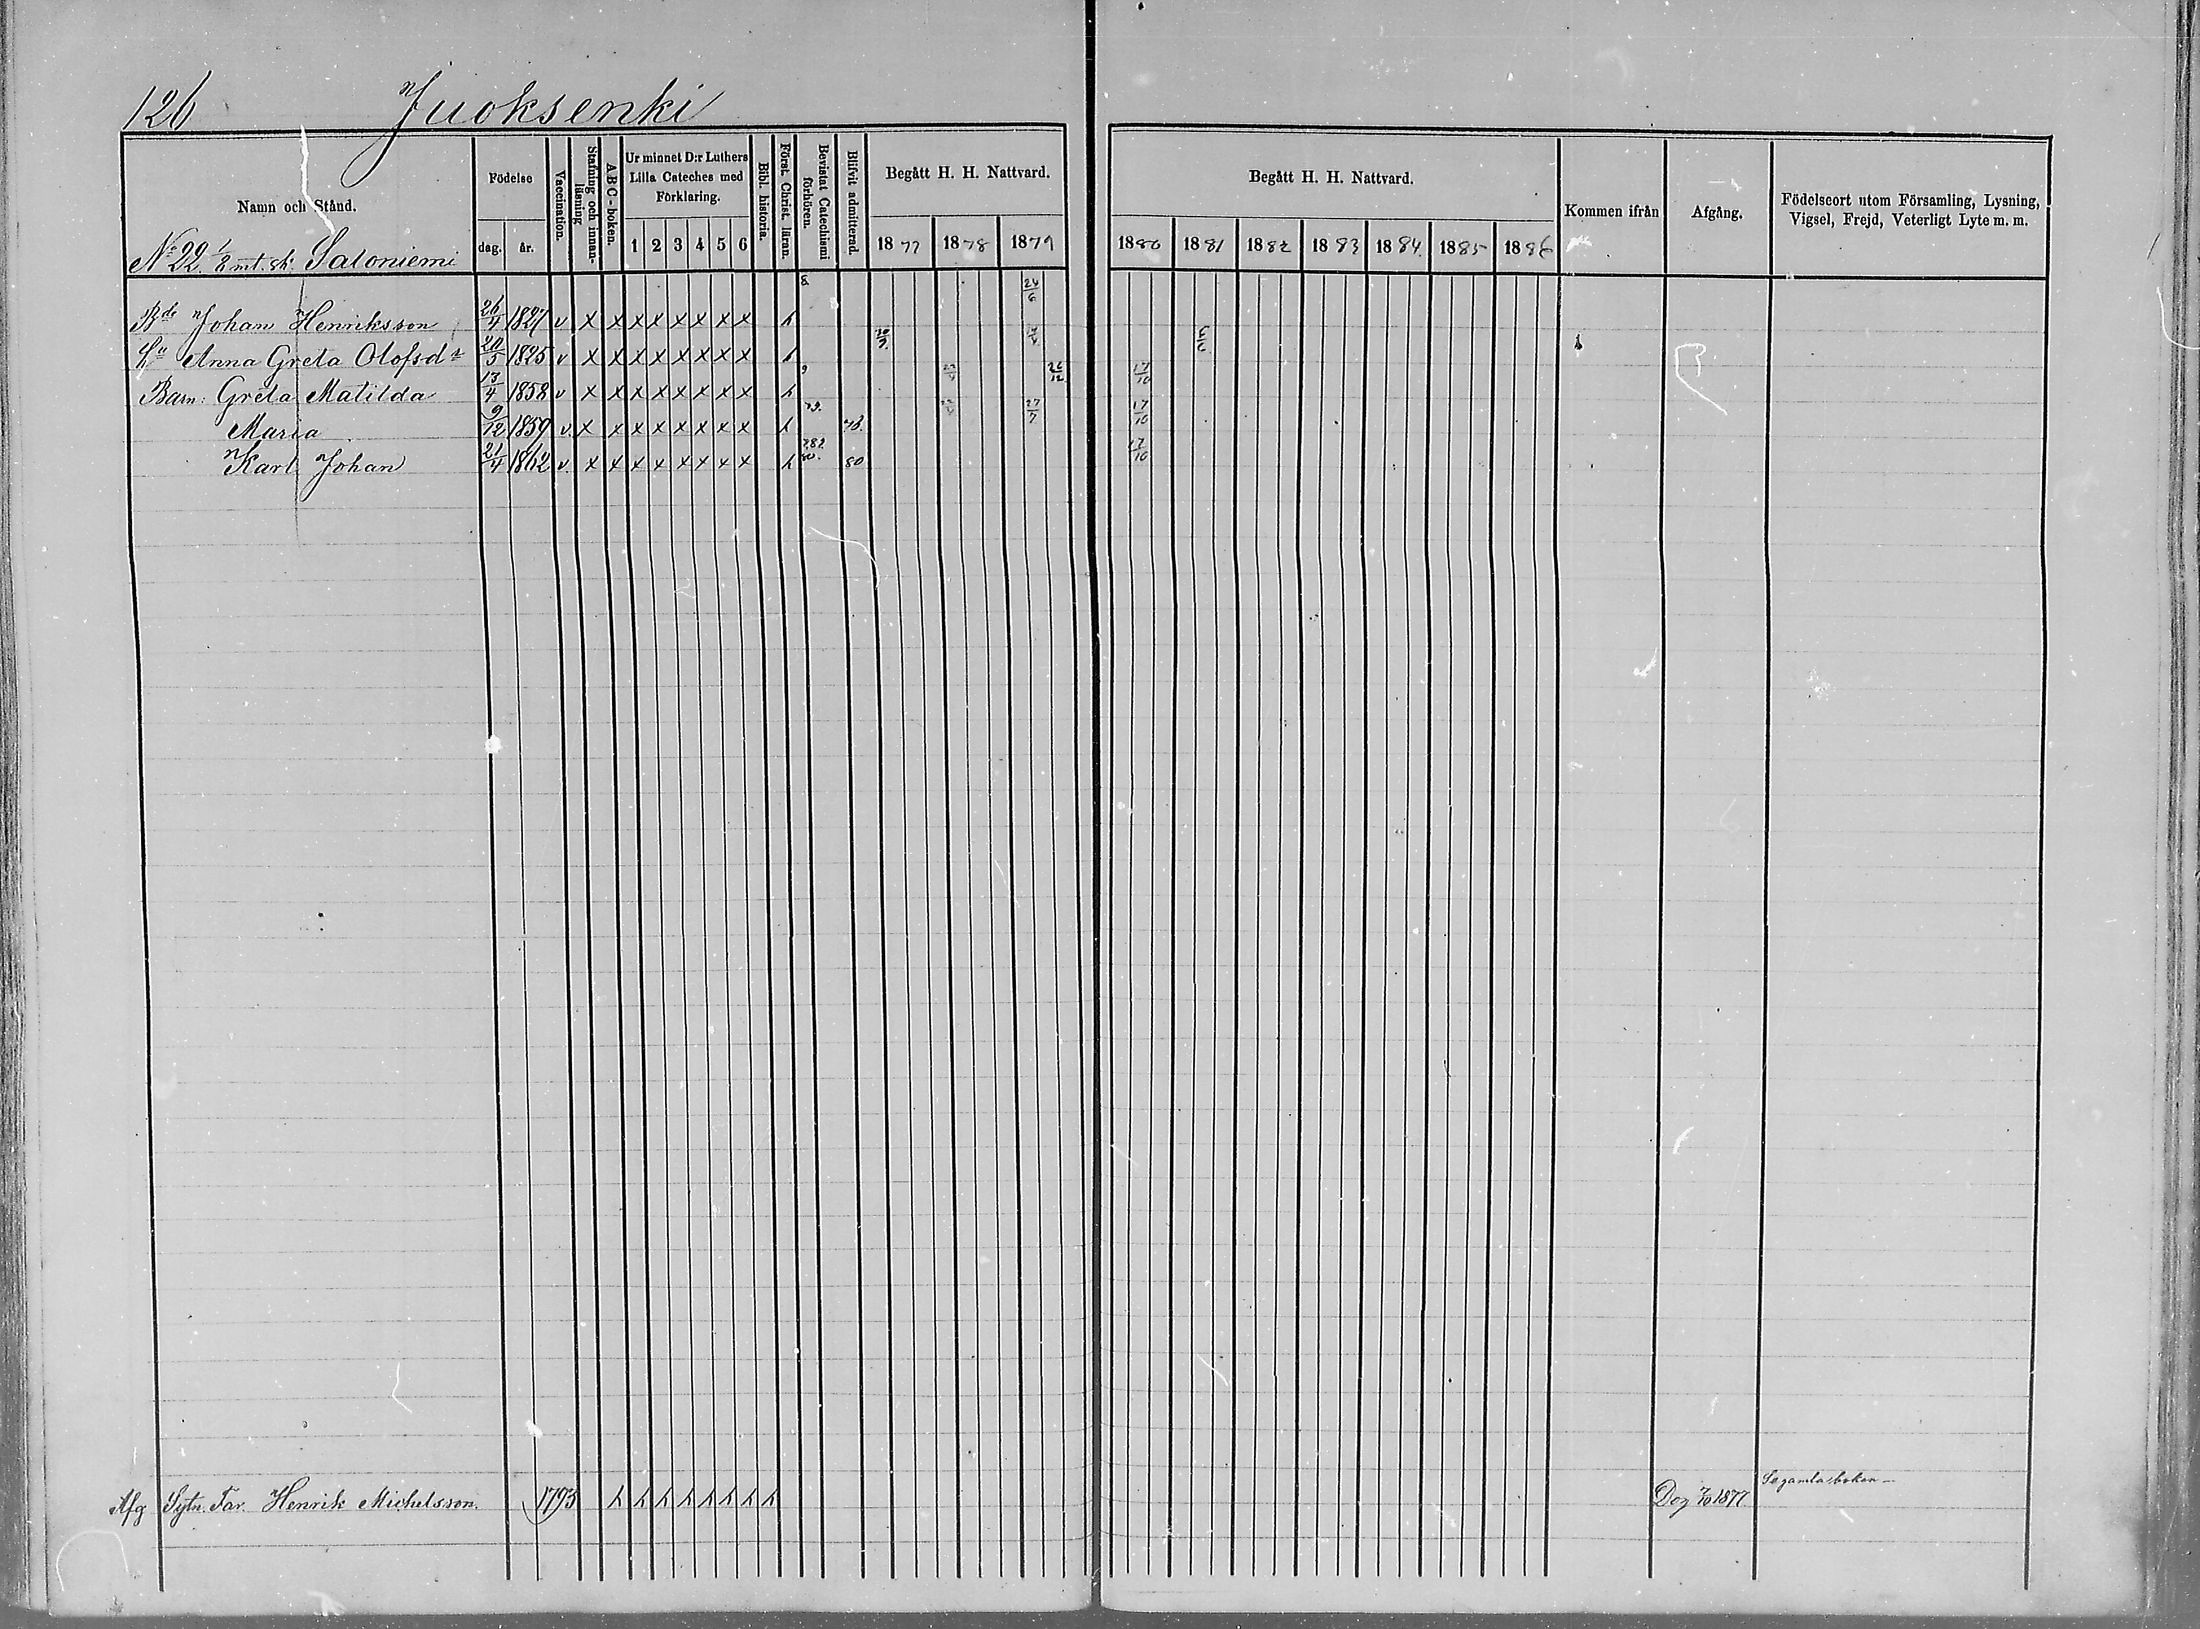 126 Juoksenki
Namn och Stånd. Födelse dag. år. Vaccination. Stafning och innanläsning A B C-boken. Ur minnet D:r Luthers Lilla Cateches med Förklaring. 1 2 3 4 5 6 Bibl. historia. Först. Christ. läran. Bevistat Catechismi förhören. Blifvit admitterad. Begått H. H. Nattvard. 1877 1878 1879
Begått H. H. Nattvard. 1880 1881 1882 1883 1884. 1885 1886 Kommen ifrån Afgång. Födelseort utom Församling, Lysning, Vigsel, Frejd, Veterligt Lyte m. m.
No 22 1/2 mt. sk. Saloniemi
Bde Johan Henriksson 26/4 1827 v x x x x x x x x 24/6
Hu Anna Greta Olofsdr 20/5 1825 v x x x x x x x x
Barn: Greta Matilda 13/4 1858 v x x x x x x x x 17/10
Maria 9/12 1859 v. x x x x x x x x 79. 78. 27/7 17/10
Karl Johan 21/4 1862 v. x x x x x x x x 80. 80 17/10
Afg Sytn. Far. Henrik Michelsson. 1793 Dog 7/10 1877 Se gamla boken